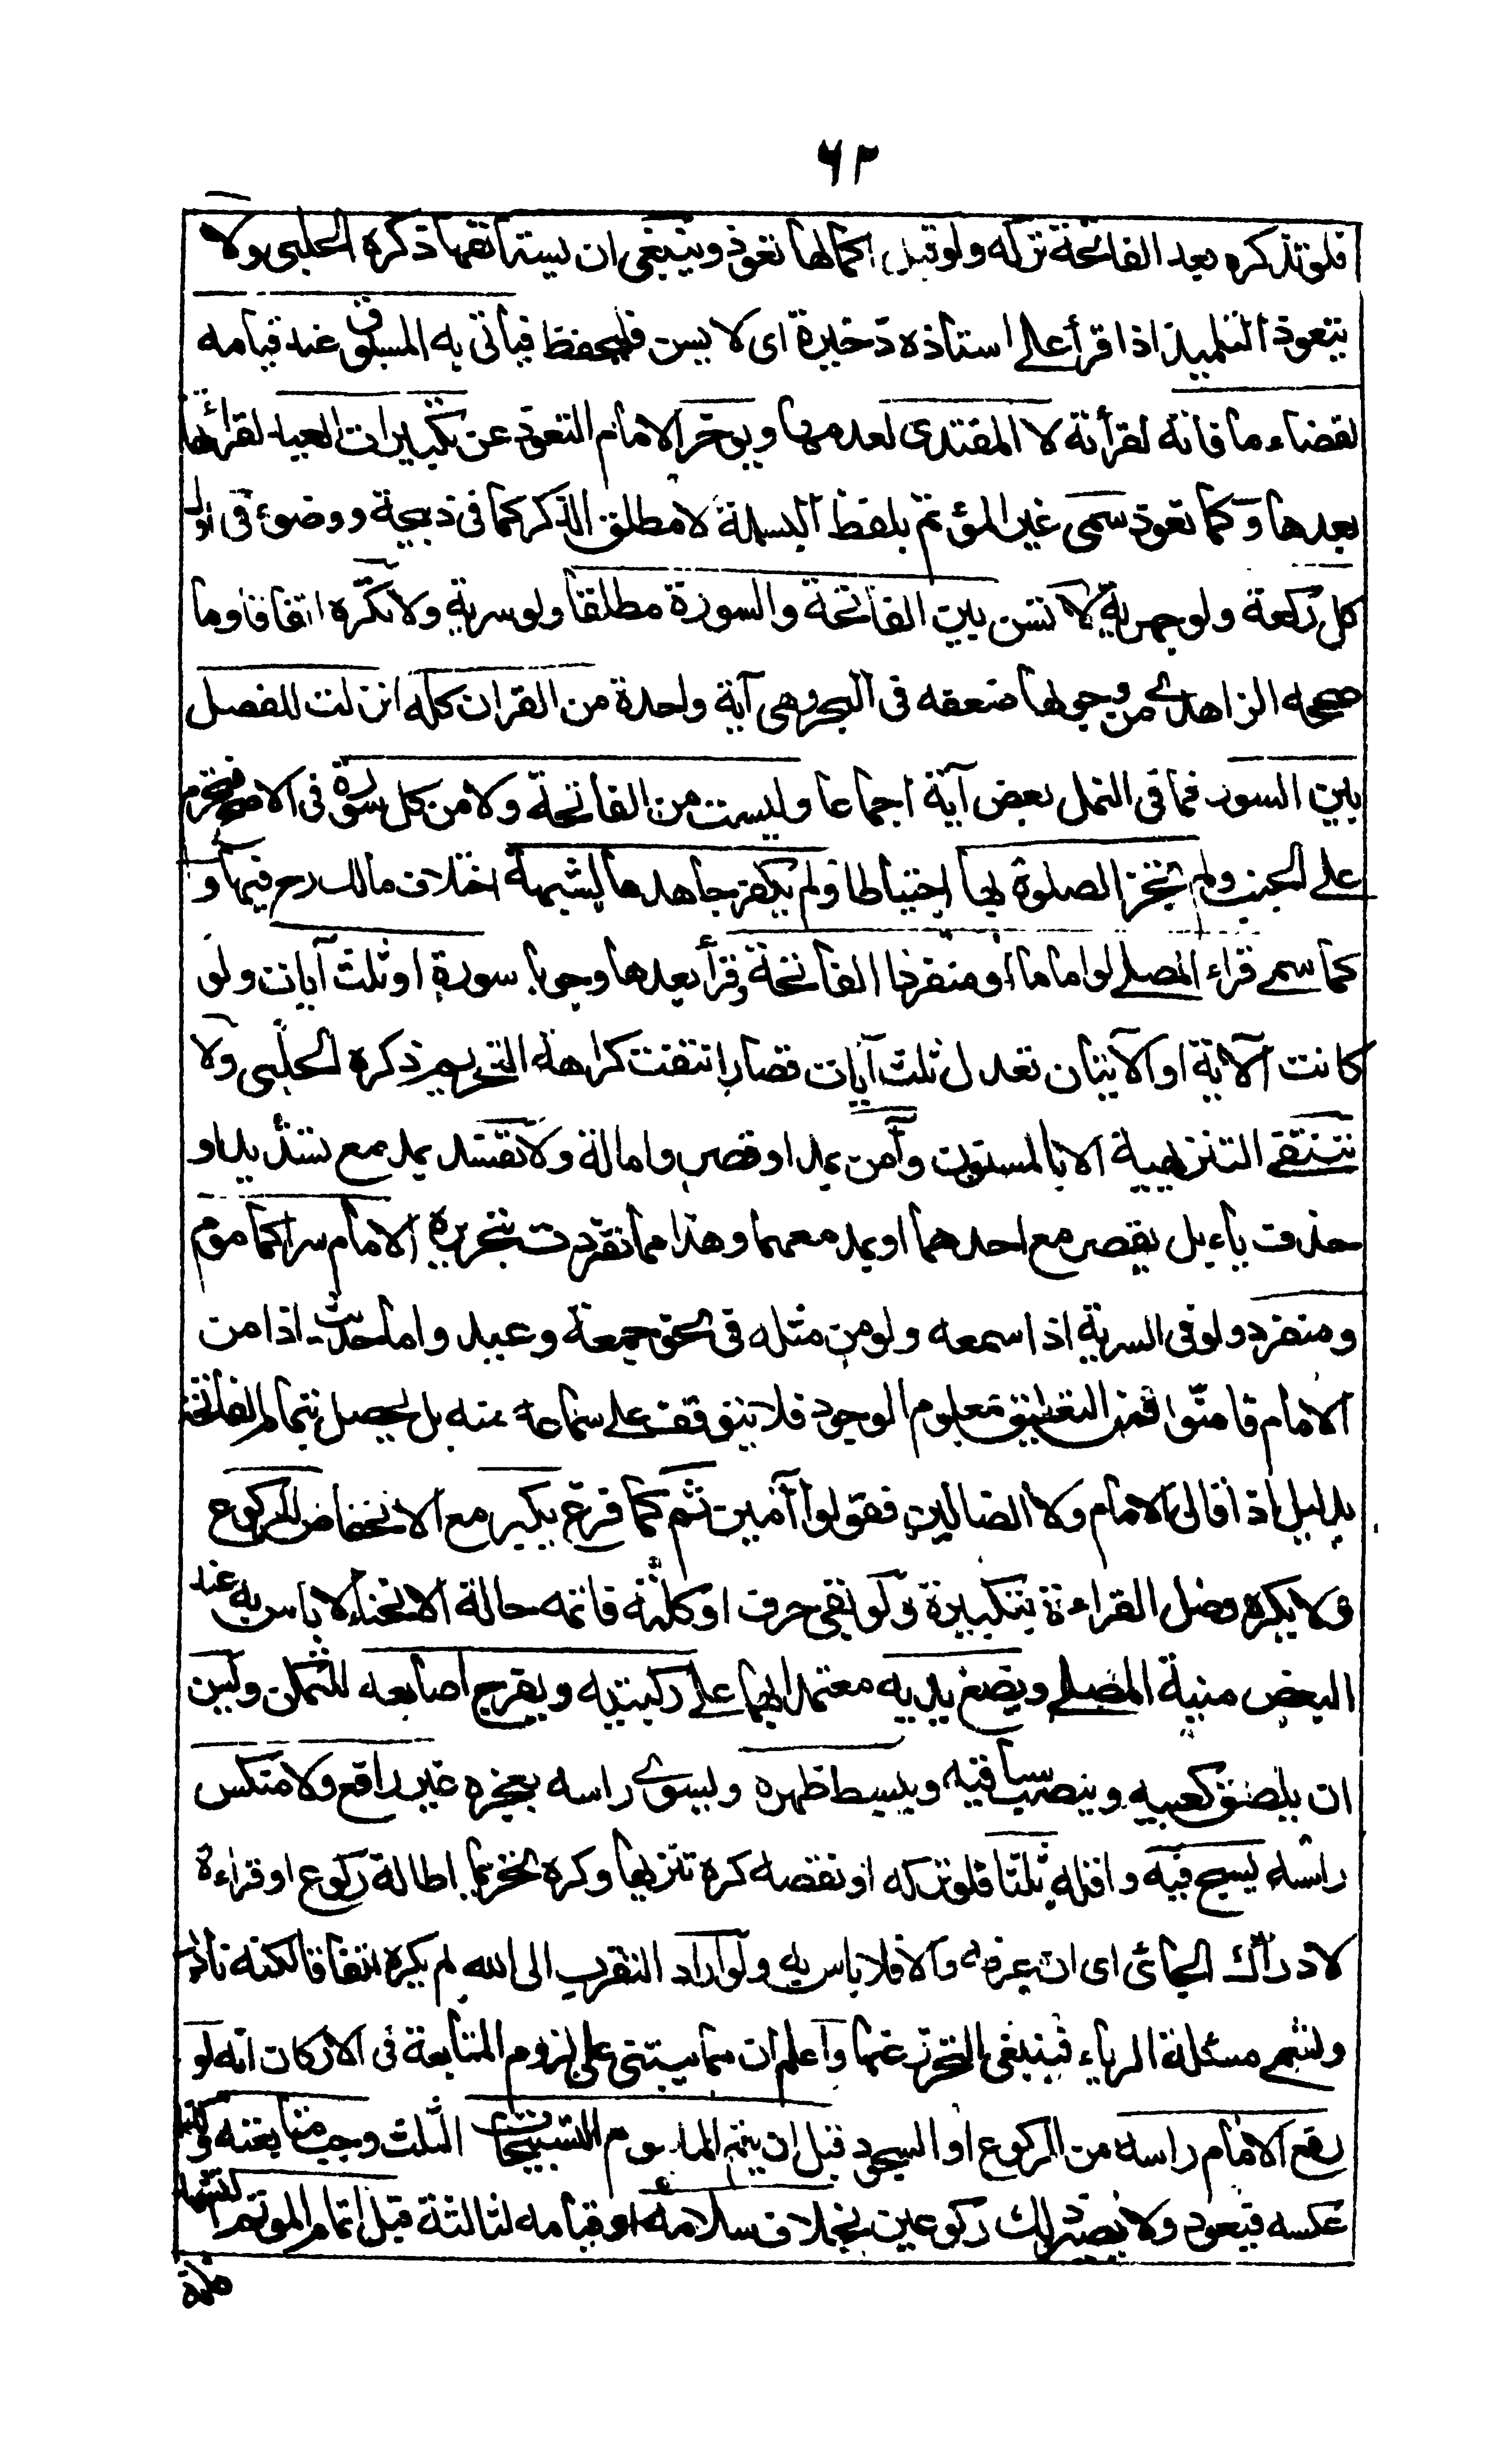 ٦٢
فلو تذكره بعد الفاتحة تركه ولو قبل اكمالها تعوذ وينبغي ان يستأنفها ذكره الحلبي ولا
يتعوذ التلميذ اذا قرأ على استاذه ذخيرة اى لا يسن فليحفظ فيأتى به المسبوق عند قيامه
لقضاء ما فاته لقرأته لا المقتدى لعدمها ويوخر الامام التعوذ عن تكبيرات العيد لقرأتها
بعدها وكما تعوذ سمى غير المؤتم بلفظ البسملة لا مطلق الذكر كما فى ذبيحة ووضوء فى اول
كل ركعة ولو جهرية لا تسن بين الفاتحة والسورة مطلقا ولو سرية ولا تكره اتفاقا وما
صححه الزاهدى من وجوبها ضعفه فى البحر وهى آية واحدة من القران كله انزلت للفصل
بين السور فما فى النمل بعض آية اجماعا وليست من الفاتحة ولا من كل سورة فى الاصح فتحرم
على الجنب ولم تجز الصلوة بها احتياطا ولم يكفر جاهدها لشبهة اختلاف مالك رح فيها و
كما سمى قراء المصلى لو اماما او منفردا الفاتحة وقرأ بعدها وجوبا سورة او ثلث آيات ولو
كانت الآية او الآيتان تعدل ثلث آيات قصار انتفت كراهة التحريم ذكره الحلبي ولا
تنتفى التنزيهية الا بالمسنون وآمن بمد او قصر وامالة ولا تفسد بمد مع تشديد او
حذف ياء بل بقصر مع احدهما او بمد معهما وهذا مما تفردت بتحريره الامام سرا كماموم
ومنفرد ولو فى السرية اذا سمعه ولو من مثله فى نحو جمعة وعيد واما حديث اذا امن
الامام فامنوا فمن التعليق معلوم الوجود فلا يتوقف على سماعه عنه بل يحصل بتمام الفاتحة
بدليل اذا قال الامام ولا الضالين فقولوا آمين ثم كما فرغ يكبر مع الانخفاض للركوع
ولا يكره وصل القراءة بتكبيرة ولو بقى حرف او كلمة فاتمه حالة الانحناء لا باس به عند
البعض منية المصلى ويضع يديه معتمدا بهما على ركبتيه ويفرج اصابعه للتمكن ويسن
ان يلصق كعبيه وينصب ساقيه ويبسط ظهره ويسوى راسه بعجزه غير رافع ولا منكس
راسه يسبح فيه واقله ثلثا فلو تركه او نقصه كره تنزيها وكره تحريما اطالة ركوع او قراءة
لادراك الجائى اى ان عرفه والا فلا باس به ولو اراد التقرب الى الله لم يكره اتفاقا لكنه نادر
ولتسمى مسئلة الرياء فينبغى التحرز عنها واعلم ان مما يبتنى على لزوم المتابعة فى الاركان انه لو
رفع الامام راسه من الركوع او السجود قبل ان يتم الماموم التسبيحات الثلث وجب متابعته وكذا
عكسه فيعود ولا يصير ذلك ركوعين بخلاف سلامه او قيامه لثالثة قبل اتمام الموتم لتشهد